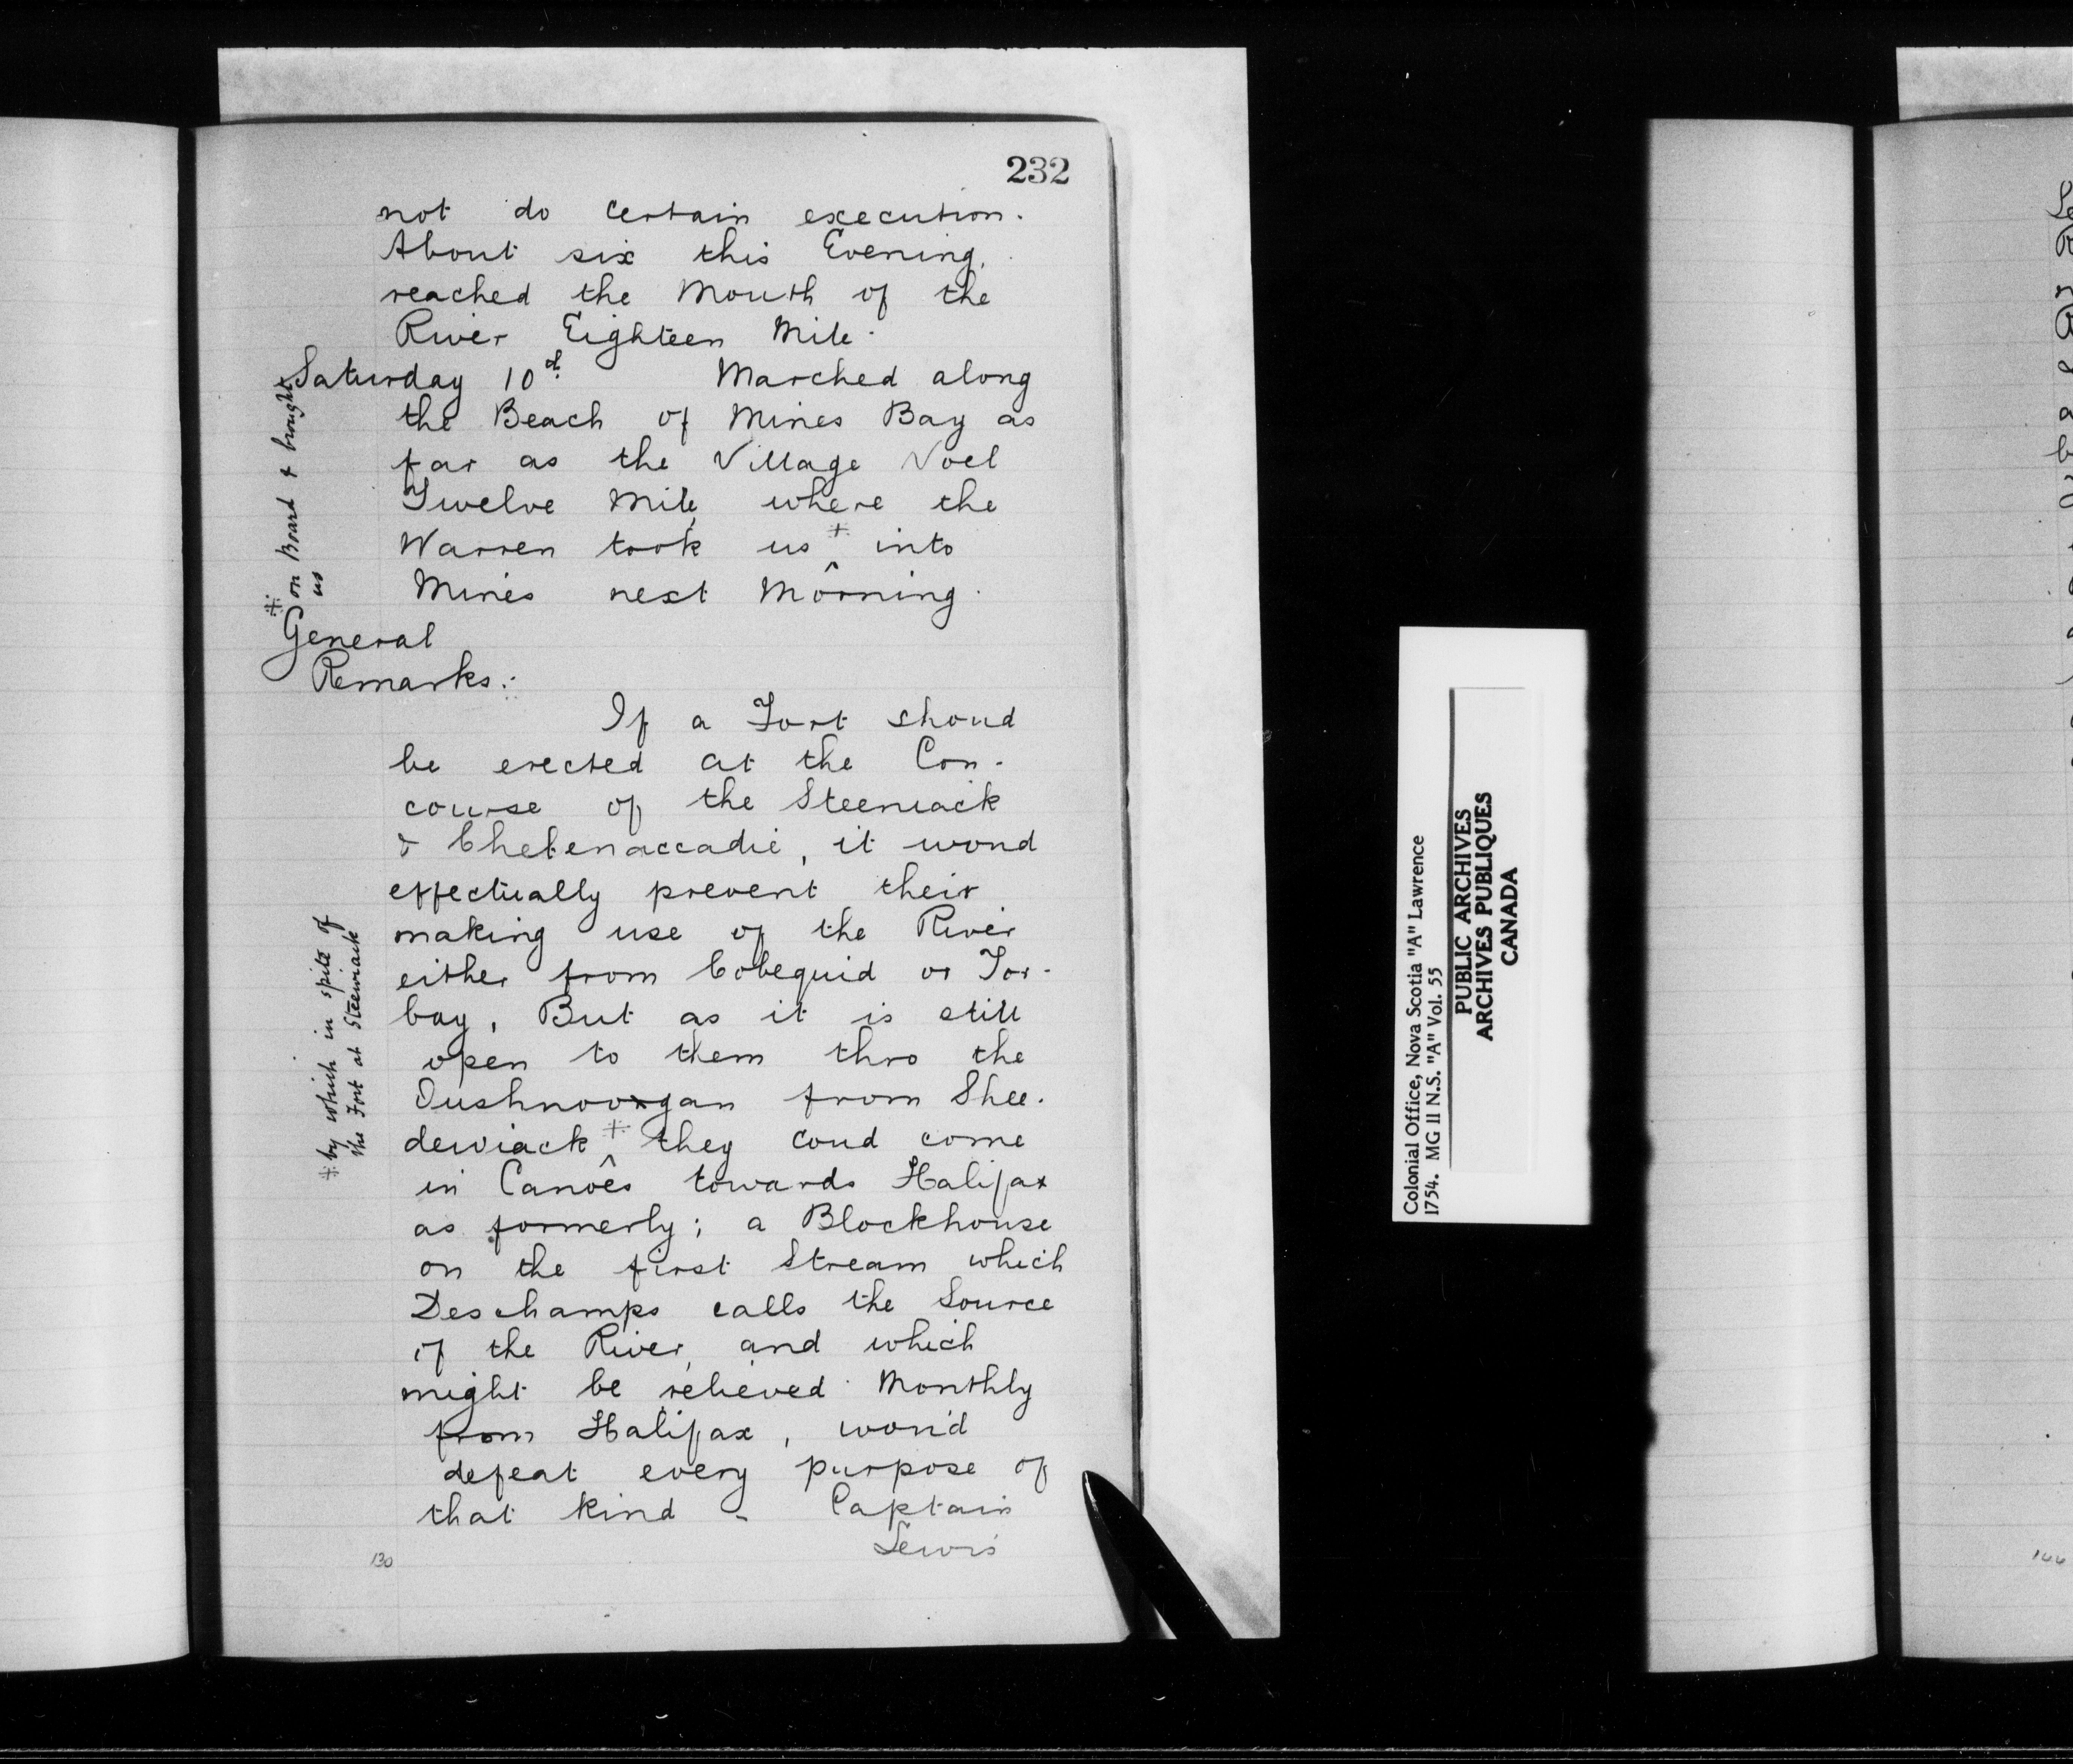 232
not do certain execution.
About six this Evening,
reached the Mouth of the
River Eighteen Mile.
Saturday 10th. Marched along
the Beach of Mines Bay as
far as the Village Noel
Twelve Mile, where the
Warren took us ‡ ^ into
Mines next Morning.
‡ on Board & brought
us
General
Remarks:
If a Fort shoud
be erected at the Con-
course of the Steeniack
& Chebenaccadie, it woud
effectually prevent their
making use of the River
either from Cobequid or Tor-
bay, But as it is still
open to them thro the
Dushnoorgan from Shee-
dewiack ‡ ^ they coud come
in Canoes towards Halifax
as formerly; a Blockhouse
on the first Stream which
Deschamps calls the Source
of the River, and which
might be relieved Monthly
from Halifax, wou'd
defeat every purpose of
that kind - Captain
Lewis
‡ by which in spite of
the Fort at Steewiack
130
Colonial Office, Nova Scotia "A" Lawrence
1754. MG 11 N.S. "A" Vol. 55
PUBLIC ARCHIVES
ARCHIVES PUBLIQUES
CANADA